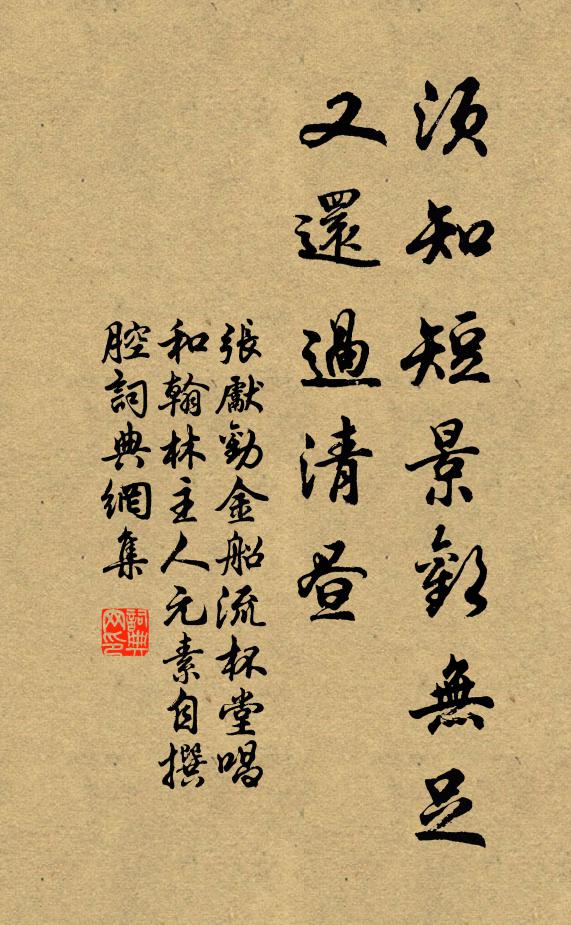 須知短景歡無足
又還過清晝
張獻勸金船流杯堂唱
和翰林主人元素自撰
腔詞典網集
詞典網印